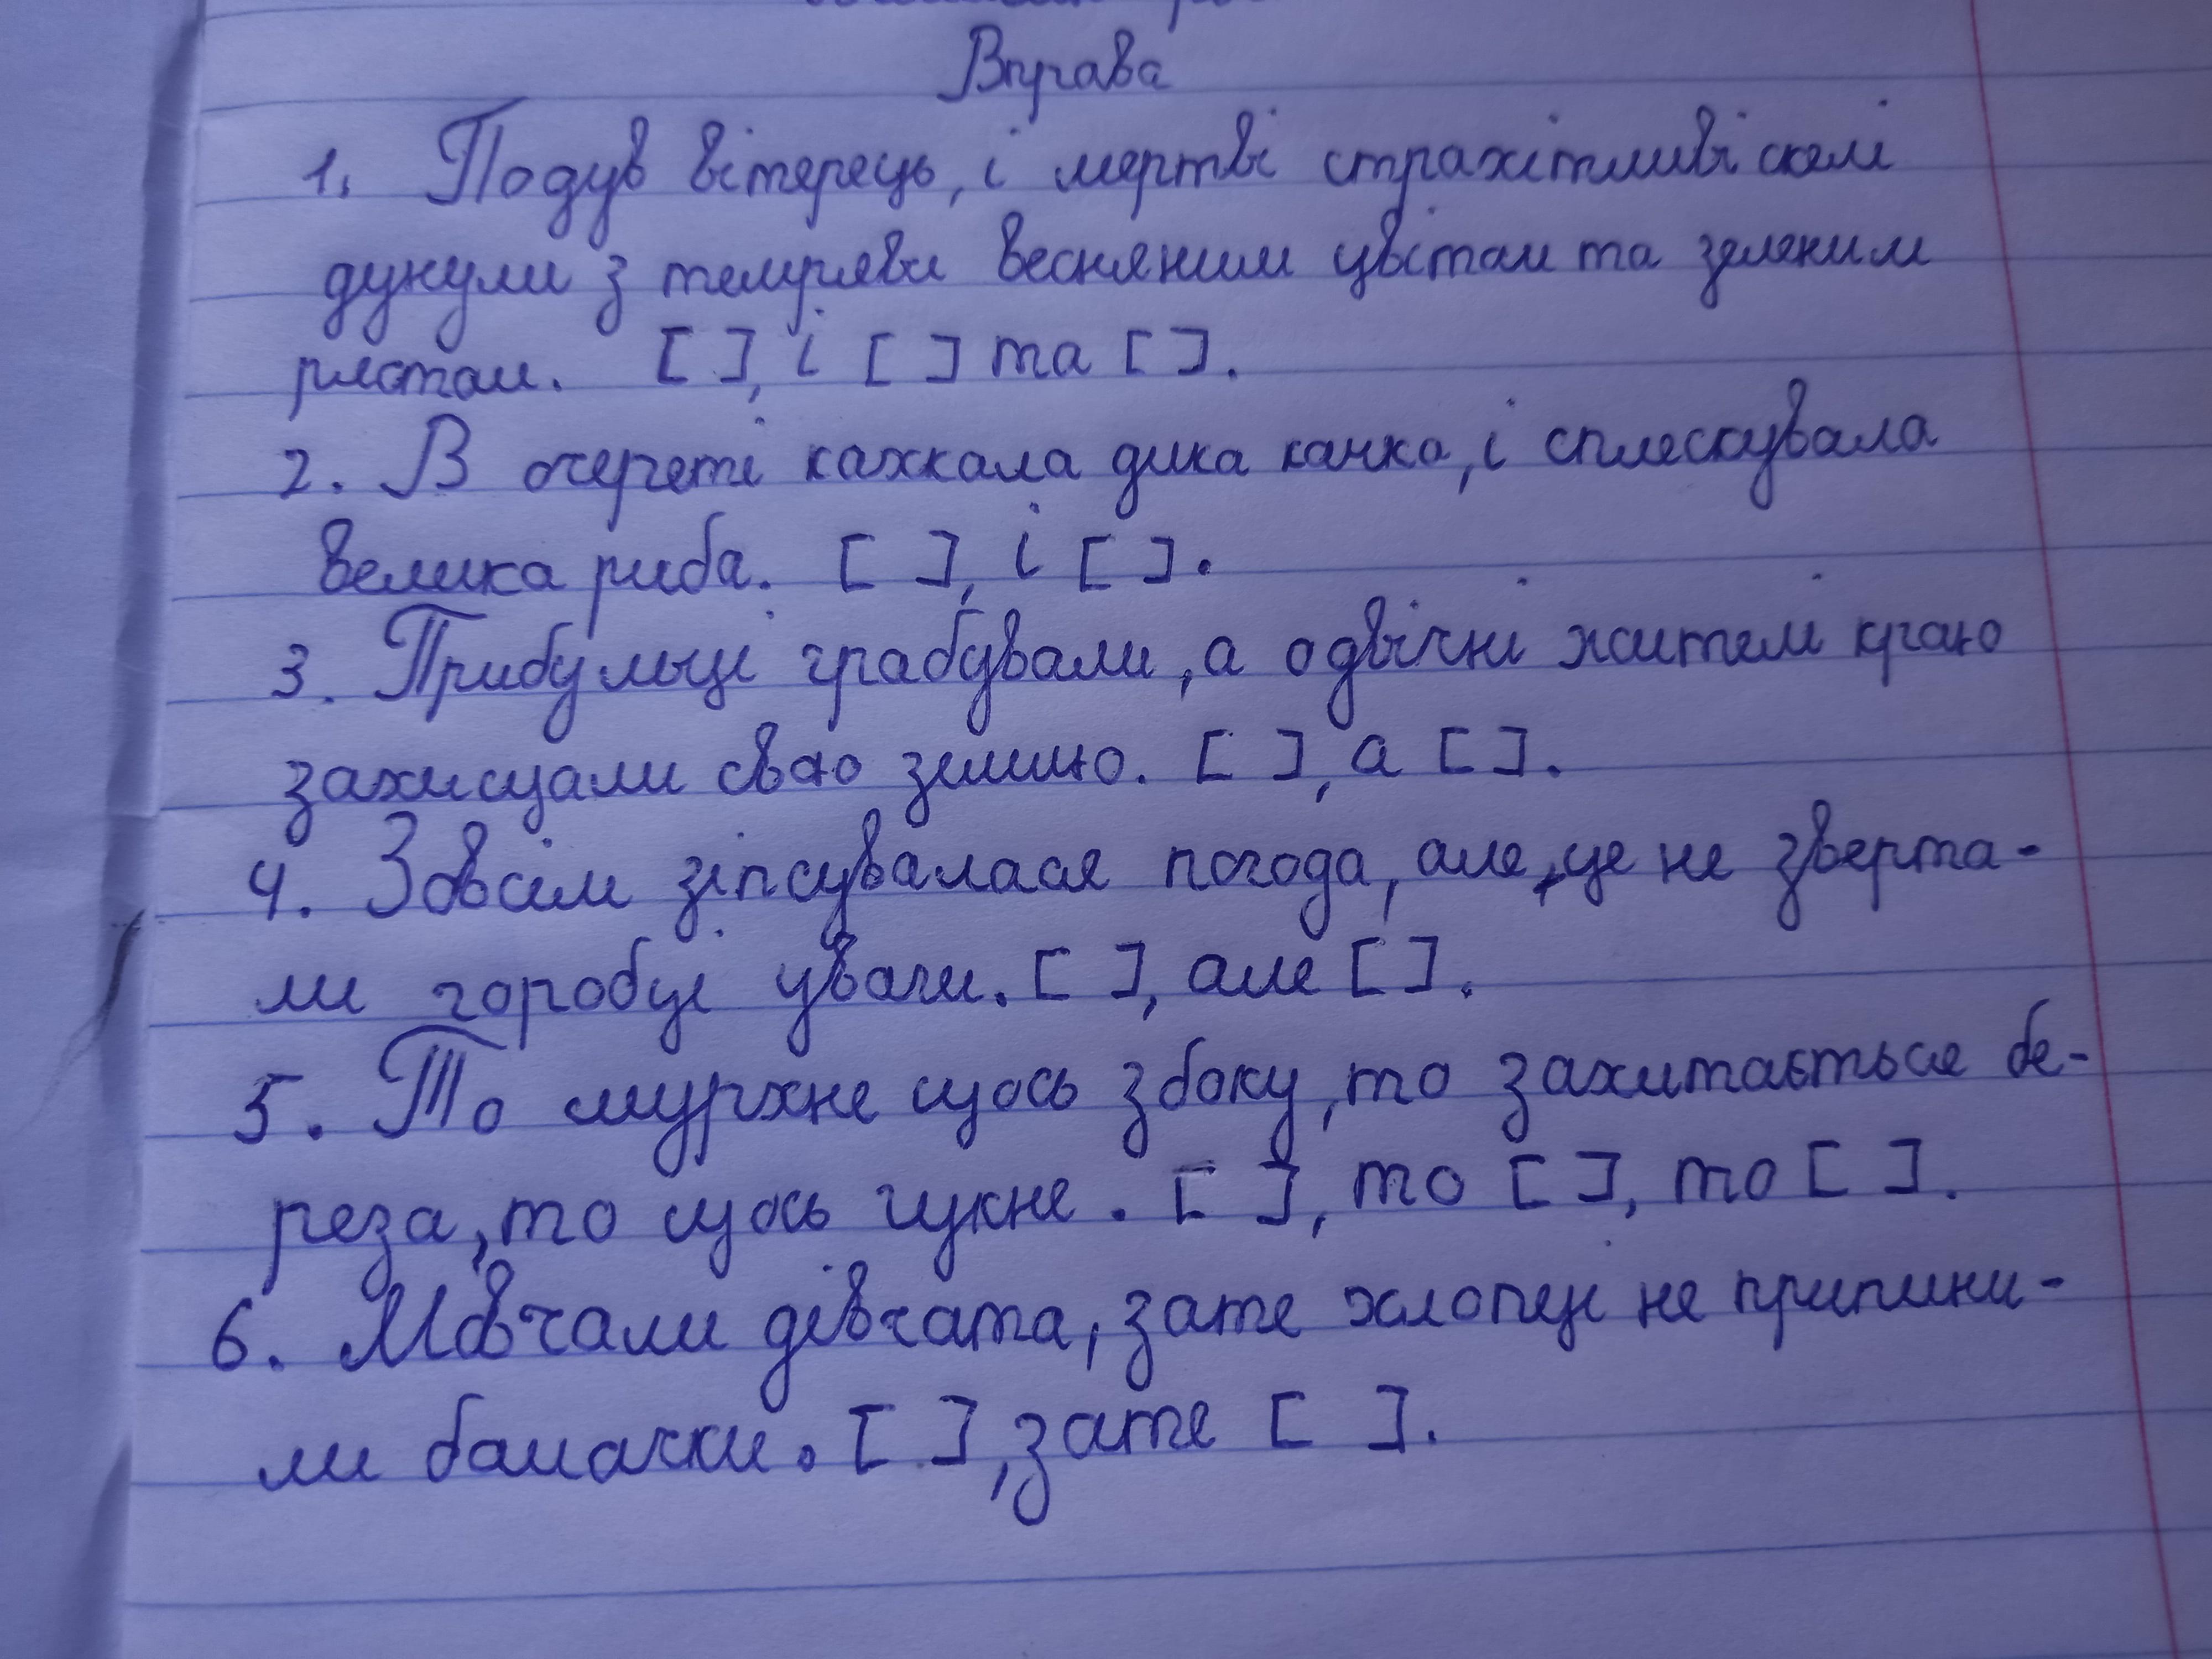 Вправа
1. Подув вітерець, і мертві страхітливі скелі
дунули з темряви весняним цвітом та зеленим
рястом. [ ], і [ ] та [ ].
2. В очереті кахкала дика качка, і сплескувала
велика риба. [ ], і [ ].
3. Прибульці грабували, а одвічні жителі краю
захищали свою землю. [ ], а [ ].
4. Зовсім зіпсувалася погода, але це не зверта-
ли горобці уваги. [ ], але [ ].
5. То шурхне щось збоку, то захитається бе-
реза, то щось гукне. [ ], то [ ], то [ ].
6. Мовчали дівчата, зате хлопці не припини-
ли балачки. [ ], зате [ ].